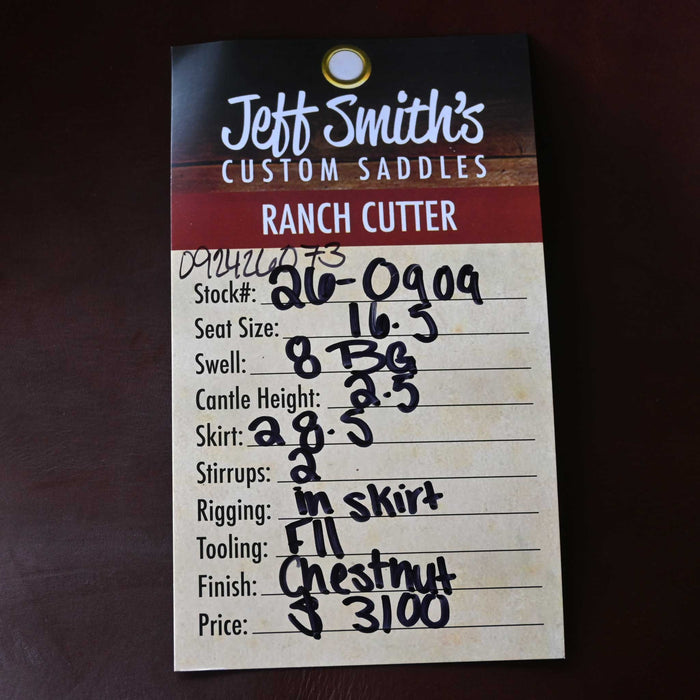 Jeff Smith's
CUSTOM SADDLES
RANCH CUTTER
0924260073
Stock#: 26-0909
Seat Size: 16.5
Swell: 8 BG
Cantle Height: 2.5
Skirt: 28.5
Stirrups: 2
Rigging: in skirt
Tooling: F11
Finish: Chestnut
Price: $ 3100